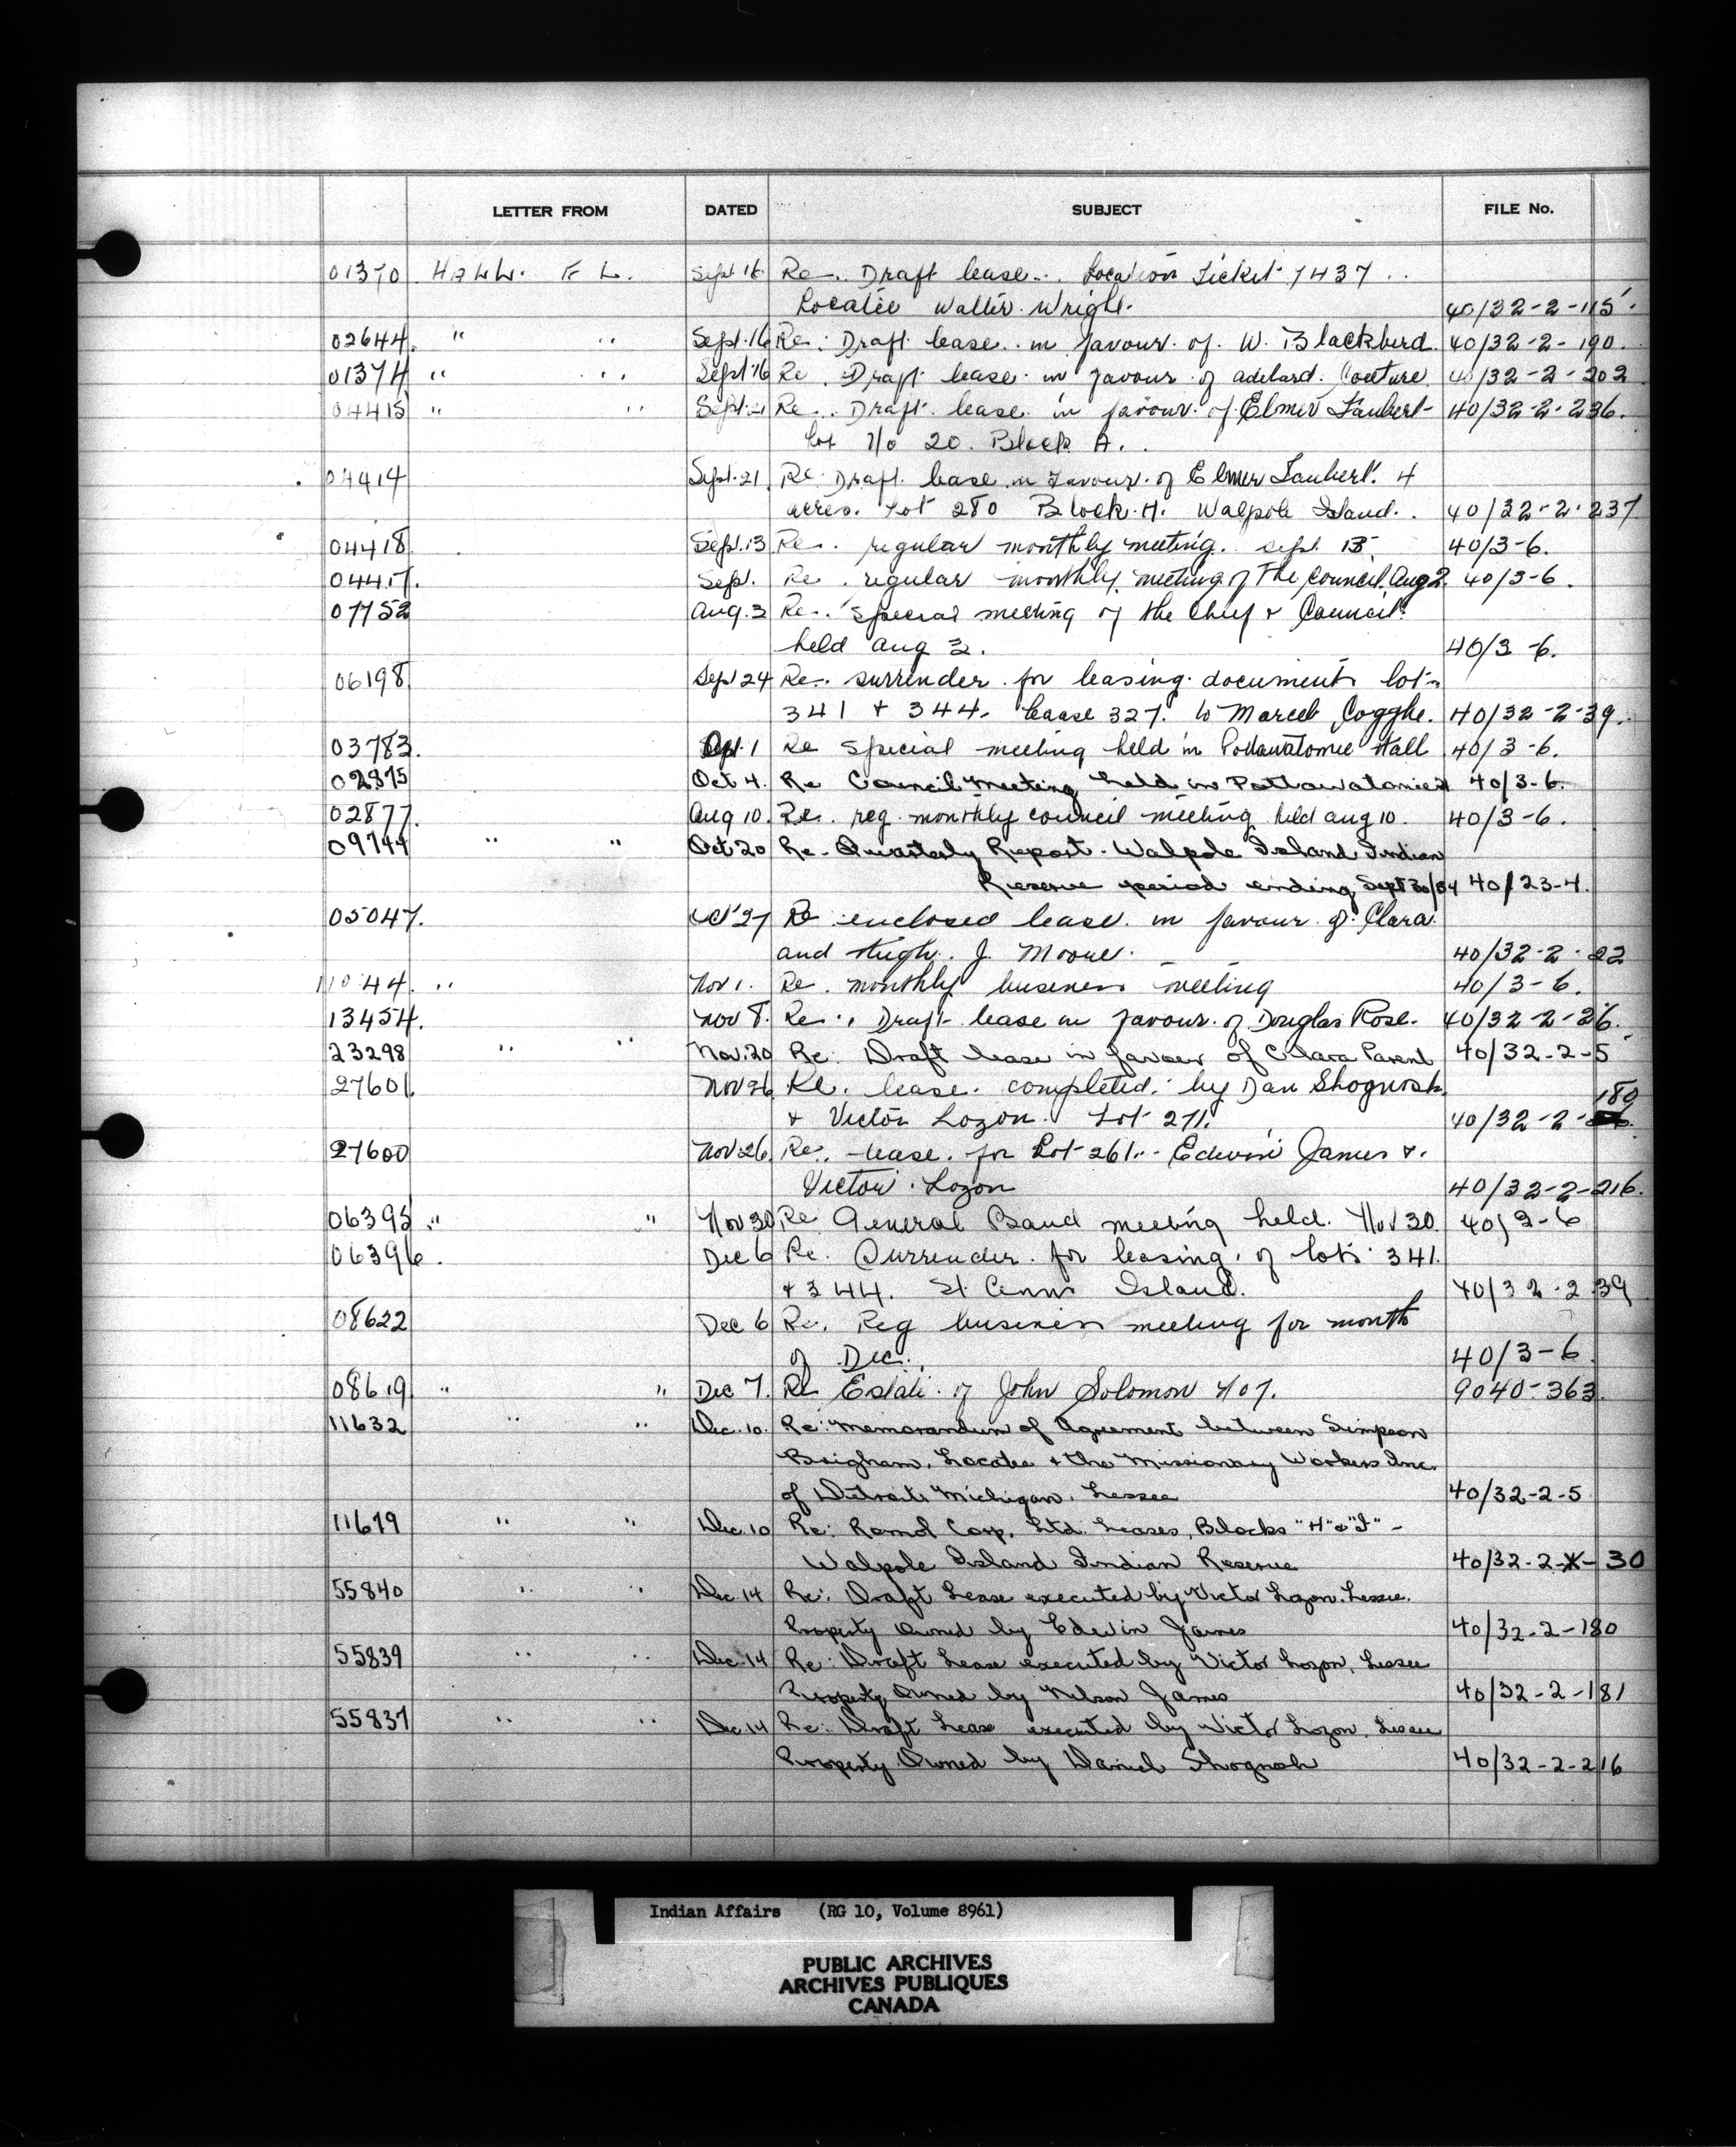 LETTER FROM DATED SUBJECT FILE No.
01370 HALL. F L. Sept 16 Re. Draft lease. Location Ticket 1437
Locatee Walter Wright. 40/32-2-115
02644 " " Sept. 16 Re: Draft lease in favour of W. Blackbird 40/32-2-190.
01374 " " Sept 16 Re. Draft lease in favour of Adelard Couture 40/32-2-202
04415 " " Sept. 21 Re. Draft lease in favour of Elmer Taubert 40/32-2-236.
Lot No 20. Block A.
04414 Sept. 21 Re: Draft lease in favour of Elmer Taubert. 4
acres. Lot 280 Block H. Walpole Island. 40/32-2-237
04418 Sept. 13 Re. regular monthly meeting. Sept. 13. 40/3-6.
04417. Sept. Re. regular monthly meeting of the Council. Aug 2. 40/3-6.
07752 Aug. 3 Re. special meeting of the Chief & Council
held Aug 3. 40/3-6.
06198 Sept 24 Re. surrender for leasing documents lots
341 & 344. Lease 327. to Marcel Cogghe. 40/32-2-39.
03783. 1 Re special meeting held in Pottawatomie Hall 40/3-6.
02875 Oct 4. Re Council Meeting held in Pottawatomie 40/3-6.
02877. Aug 10. Re. reg. monthly council meeting held Aug 10. 40/3-6.
09744 " " Oct 20 Re- Quarterly Report. Walpole Island Indian
Reserve period ending Sept 30/54 40/23-4.
05047. Oct 27 Re enclosed lease in favour of Clara
and Hugh J. Moore. 40/32-2-22
11044. " Nov 1. Re. monthly business meeting 40/3-6.
13454. Nov 8. Re. Draft lease in favour of Douglas Rose. 40/32-2-26.
23298 " " Nov. 20 Re: Draft lease in favour of Clara Parent 40/32-2-5
27601. Nov 26 Re. lease completed by Dan Shognosh
180
& Victor Lozon. Lot 271. 40/32-2-
27600 Nov. 26 Re. lease for Lot 261. Edwin James &
Victor Lozon 40/32-2-216.
06395 " " Nov 30 Re General Band meeting held. Nov 30. 40/3-6
06396. Dec 6 Re. Surrender for leasing of lots 341.
& 344. St. Anns Island. 40/32-2 39
08622 Dec 6 Re. Reg business meeting for month
of Dec. 40/3-6
08619 " " Dec 7. Re Estate of John Solomon 407. 9040-363.
11632 " " Dec. 10. Re: Memorandum of Agreement between Simpson
Brigham, Locatee & the Missionary Workers Inc.
of Detroit Michigan, Lessee 40/32-2-5
11679 " " Dec. 10 Re: Romol Corp. Ltd. Leases, Blocks "H" & "I" -
Walpole Island Indian Reserve 40/32-2-X-30
55840 " " Dec. 14 Re: Draft Lease executed by Victor Lozon. Lessee.
Property Owned by Edwin James 40/32-2-180
55839 " " Dec. 14 Re: Draft Lease executed by Victor Lozon, Lessee
Property Owned by Nelson James 40/32-2-181
55837 " " Dec. 14 Re: Draft Lease executed by Victor Lozon, Lessee
Property Owned by Daniel Shognosh 40/32-2-216
Indian Affairs (RG 10, Volume 8961)
PUBLIC ARCHIVES
ARCHIVES PUBLIQUES
CANADA